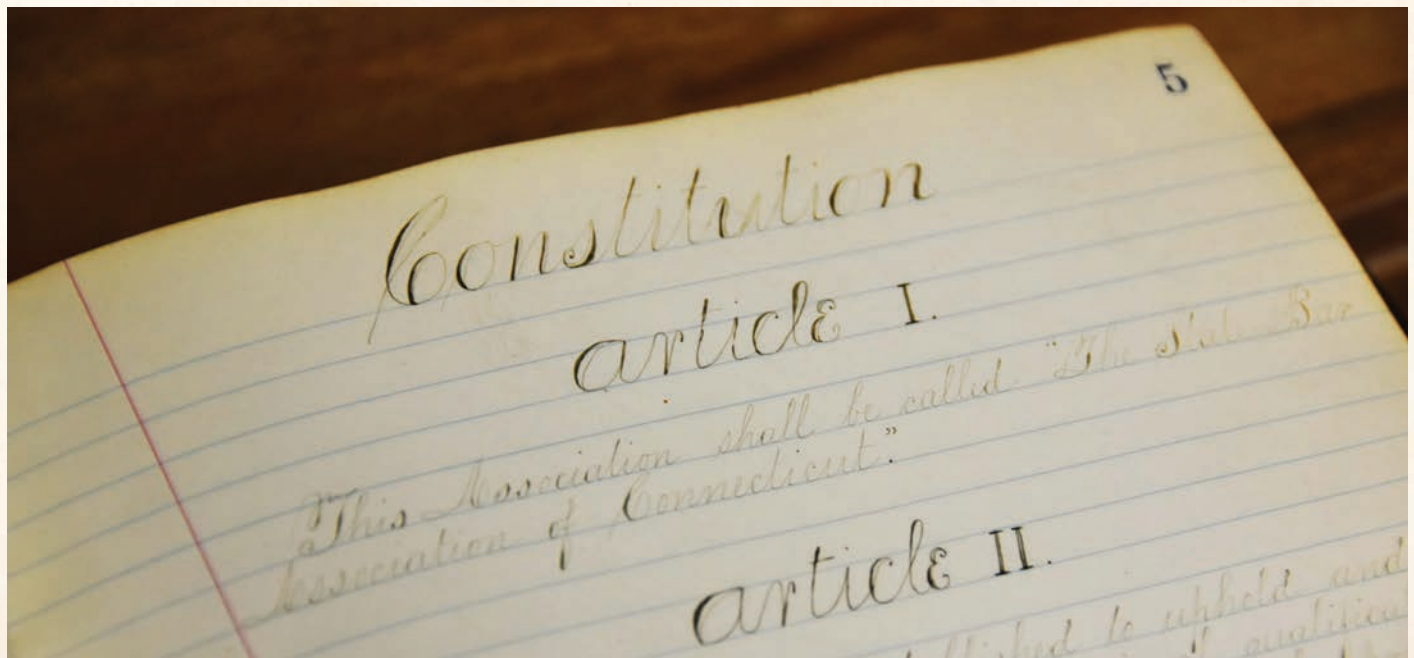 5
Constitution
article I.
This Association shall be called "The State Bar
Association of Connecticut."
article II.
to uphold and